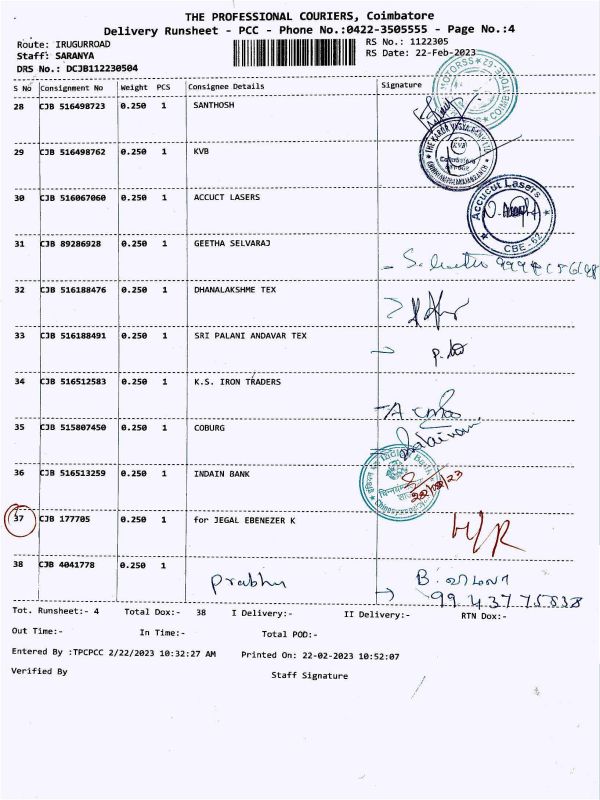 THE PROFESSIONAL COURIERS, Coimbatore
Delivery Runsheet - PCC - Phone No.:0422-3505555 - Page No.:4
Route: IRUGURROAD
RS No.: 1122305
Staff: SARANYA
RS Date: 22-Feb-2023
DRS No.: DCJB112230504
S No Consignment No Weight PCS Consignee Details Signature
28 CJB 516498723 0.250 1 SANTHOSH
29 CJB 516498762 0.250 1 KVB
KVB
Coimbatore
30 CJB 516067060 0.250 1 ACCUCT LASERS
Accucut Lasers
CBE-62
31 CJB 89286928 0.250 1 GEETHA SELVARAJ
32 CJB 516188476 0.250 1 DHANALAKSHME TEX
33 CJB 516188491 0.250 1 SRI PALANI ANDAVAR TEX
34 CJB 516512583 0.250 1 K.S. IRON TRADERS
35 CJB 515807450 0.250 1 COBURG
36 CJB 516513259 0.250 1 INDAIN BANK
22/02/23
37 CJB 177705 0.250 1 for JEGAL EBENEZER K
H/R
38 CJB 4041778 0.250 1
Prabhu
99437 75838
Tot. Runsheet:- 4 Total Dox:- 38 I Delivery:- II Delivery:- RTN Dox:-
Out Time:- In Time:- Total POD:-
Entered By :TPCPCC 2/22/2023 10:32:27 AM Printed On: 22-02-2023 10:52:07
Verified By
Staff Signature